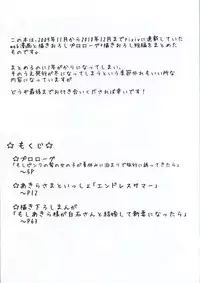 この本は、2009年11月から2010年12月までPixivに連載していた
web漫画と描きおろしプロローグ+描きおろし短編をまとめた
ものですv
まとめるのに1年がかりになってしまい、
そのうえ発行が冬になってしまうという季節外れもいい所な
内容になっていますが
どうぞ最後までお付き合いくだされば幸いです!
☆もくじ☆
☆プロローグ
「もしピンクの髪の女の子が夏休みに泊まりで旅行に誘ってきたら」
～5P
☆あきらさまといっしょ「エンドレスサマー」
～P12
☆描き下ろしまんが
「もしあきら様が白石さんと結婚して新妻になったら」
～P63